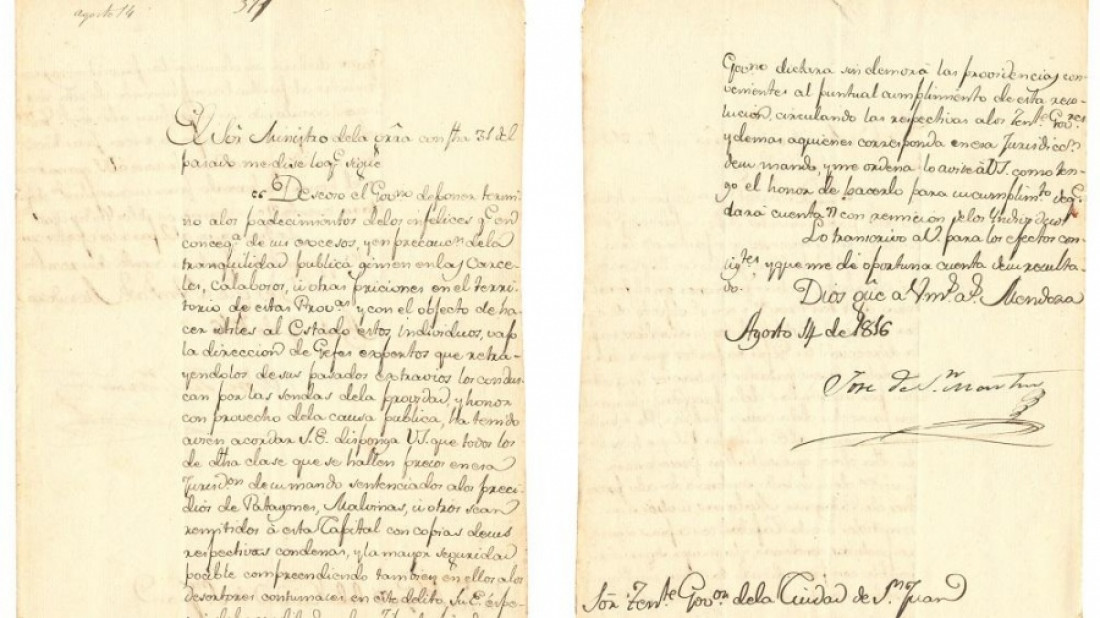 agosto 14
El Sõr Ministro dela Grra con fha 31 del
pasado me dise loqe sigue
"Deseoso el Govno deponer termi-
no alos padecimientos delos infelices qe en
conceqa de sus excesos, y en precaucn dela
tranquilidad publica gimen en las Carce-
les, calabosos, ù otras priciones en el terri-
torio de estas Provas y con el objeto de ha-
cer utiles al Estado estos individuos, vajo
la direccion de Gefes expertos que retra-
yendolos de sus pasados extravios los condus-
can por las sendas dela providad, y honor
con provecho dela causa publica, ha tenido
avien acordar S.E. disponga VS. que todos los
de dha clase que se hallen presos en esa
Jurisdon de su mando sentenciados alos preci-
dios de Patagones, Malvinas, ù otros sean
remitidos à esta Capital con copias desus
respectivas condenas, y la mayor seguridad
pocible comprendiendo tambien en ellos alos
desertores contumaces en este delito. Su E. espe-
Govno dictara sin demora las providencias con-
venientes al puntual cumplimiento de esta reso-
lucion, circulando las respectivas alos Tentes Govres
y demas aquienes corresponda en esa Jurisdiccn
desu mando, y me ordena lo avise à VS. como ten-
go el honor de hacerlo para su cumplimto deqe
dará cuenta con remicion delos Yndividuos"
Lo transcrivo a V. para los efectos con-
sigtes y que me dé oportuna cuenta desu resulta-
do.
Dios gue a Vm. ms. as. Mendoza
Agosto 14 de 1816
Jose de Sn Martin
Sõr Tente Govor dela Ciudad de Sn Juan